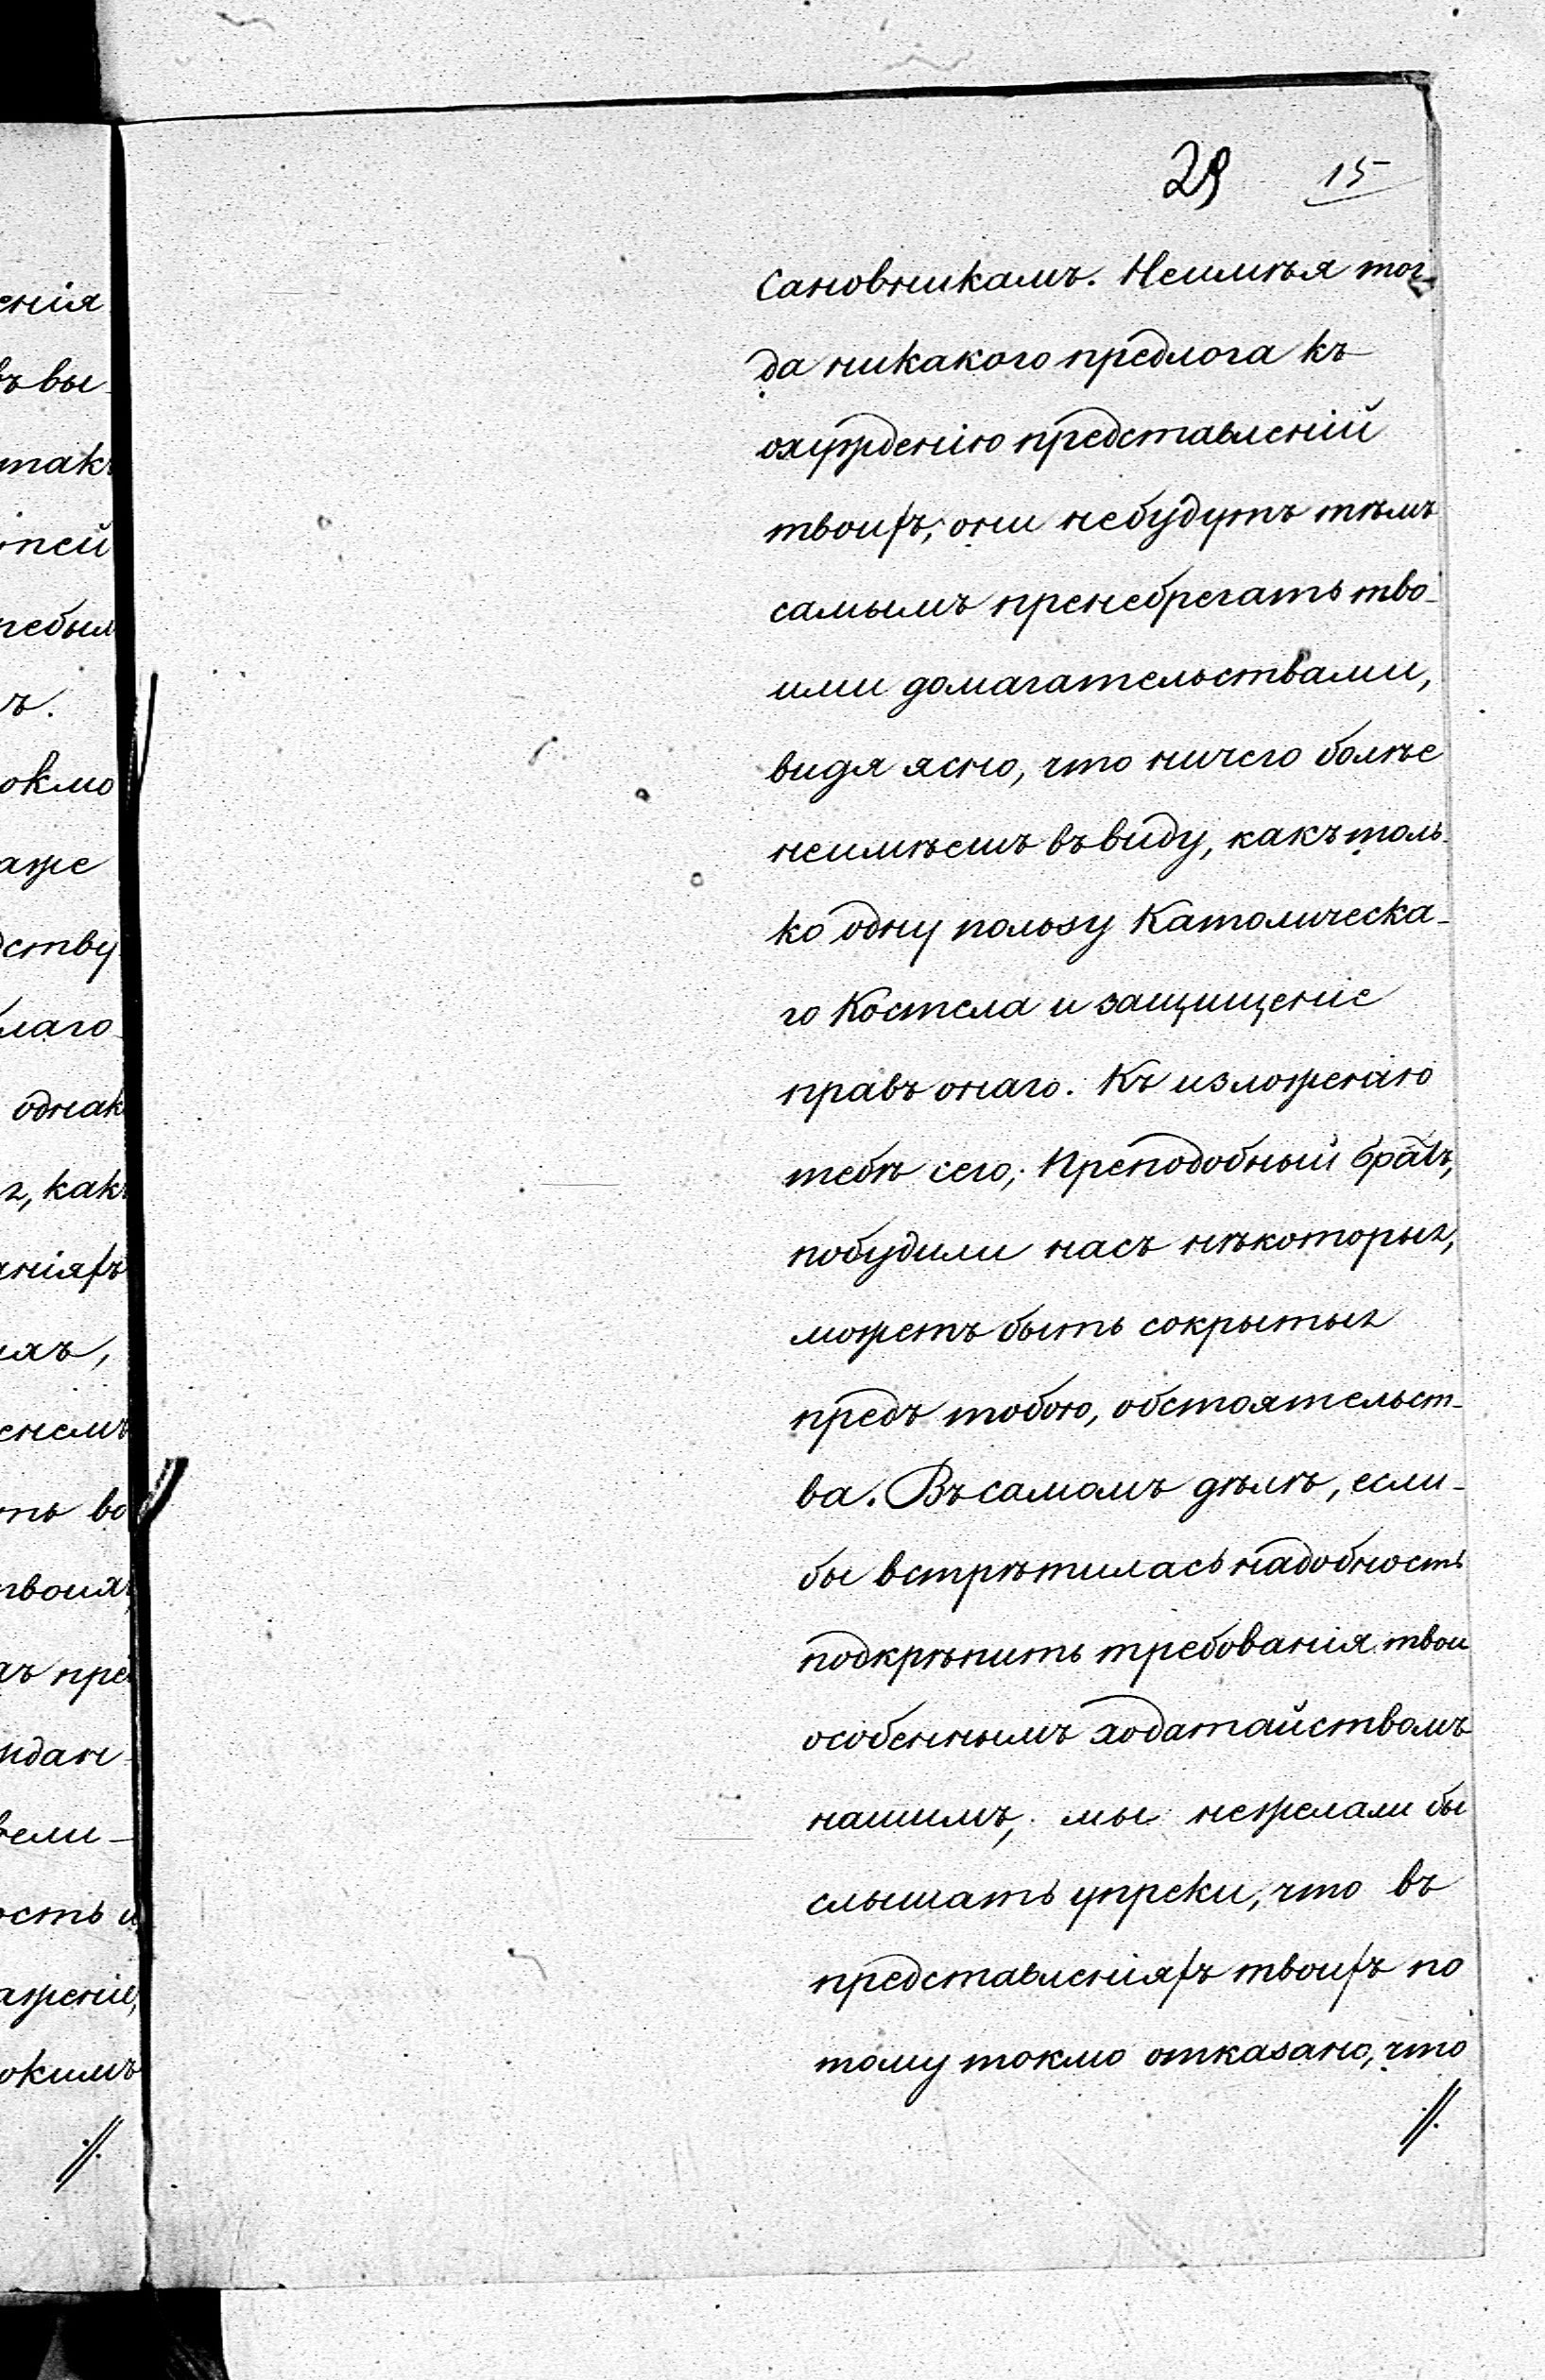 29 15
сановникамъ. Неимѣя тог-
да никакого предлога къ
охужденію представленій
твоихъ, они небудутъ тѣмъ
самымъ пренебрегать тво-
ими домагательствами,
видя ясно, что ничего болѣе
неимѣешъ въ виду, какъ толь-
ко одну пользу Католическа-
го Костела и защищеніе
правъ онаго. Къ изложенію
тебѣ сего, Преподобный братъ,
побудили насъ нѣкоторыя,
можетъ быть сокрытыя
предъ тобою, обстоятельст-
ва. Въ самомъ дѣлѣ, если-
бы встрѣтилась надобность
подкрѣпить требованія твои
особеннымъ ходатайствомъ
нашимъ, мы нежелали бы
слышать упреки, что въ
представленіяхъ твоихъ по
тому токмо отказано, что
//.